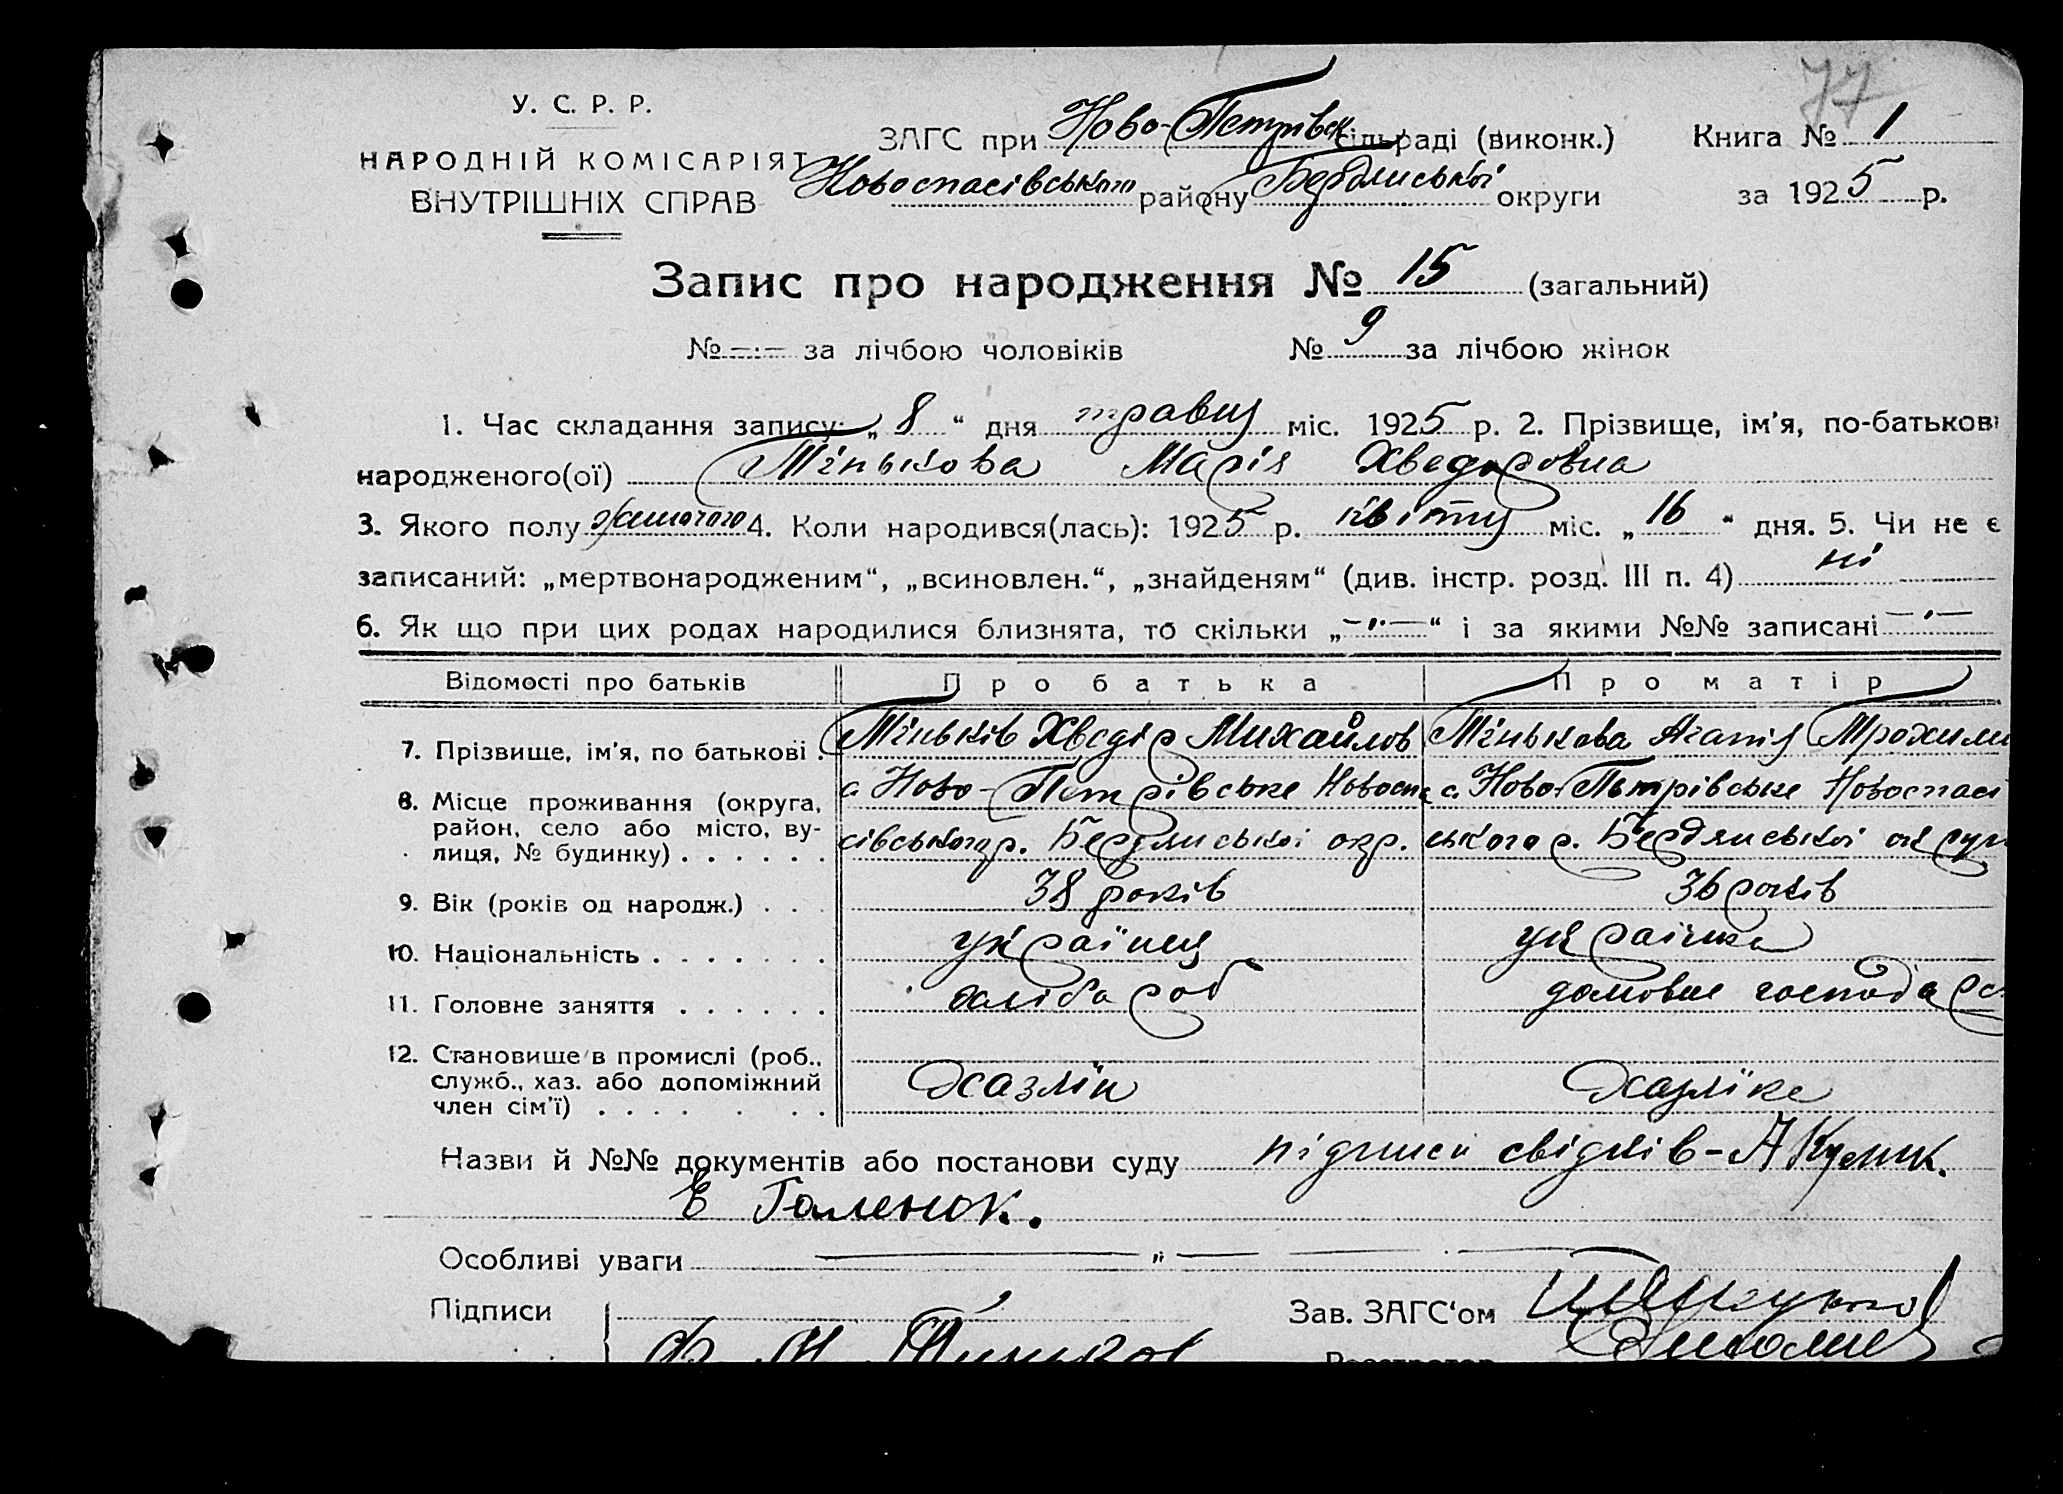 77
У. С. Р. Р.
НАРОДНІЙ КОМІСАРІЯТ
ВНУТРІШНІХ СПРАВ
ЗАГС при Ново-Петрівск сільраді (виконк.) Книга № 1
Новоспасівського району Бердянської округи за 1925 р.
Запис про народження № 15 (загальний)
№ —·— за лічбою чоловіків № 9 за лічбою жінок
1. Час складання запису: „ 8 “ дня травня міс. 1925 р. 2. Прізвище, ім'я, по-батькові
народженого(ої) Тінькова Марія Хведоровна
3. Якого полу жіночого 4. Коли народився(лась): 1925 р. квітня міс. „ 16 “ дня. 5. Чи не є
записаний: „мертвонародженим“, „всиновлен.“, „знайденям“ (див. інстр. розд. III п. 4) ні
6. Як що при цих родах народилися близнята, то скільки „—··—“ і за якими №№ записані —·—
Відомості про батьків Про батька Про матір
7. Прізвище, ім'я, по батькові . Тіньків Хведір Михайлов Тінькова Агапія Трохими
8. Місце проживання (округа, район, село або місто, вулиця, № будинку) . . . . . . с Ново-Петрівське Новоспа с. Ново-Петрівське Новоспасі
сівського р. Бердянської окр. ського р. Бердянської округи
9. Вік (років од народж.) . . . 38 років 36 років
10. Національність . . . . . . . українець українка
11. Головне заняття . . . . . . хлібороб домовне господар
12. Становище в промислі (роб., служб., хаз. або допоміжний член сім'ї) . . . . . . . Хазяїн Хазяйка
Назви й №№ документів або постанови суду підписи свідків - А Кулик.
Е Галенок.
Особливі уваги — „ —
Підписи Зав. ЗАГС'ом
Ф. М. Тиньков Реєстратор